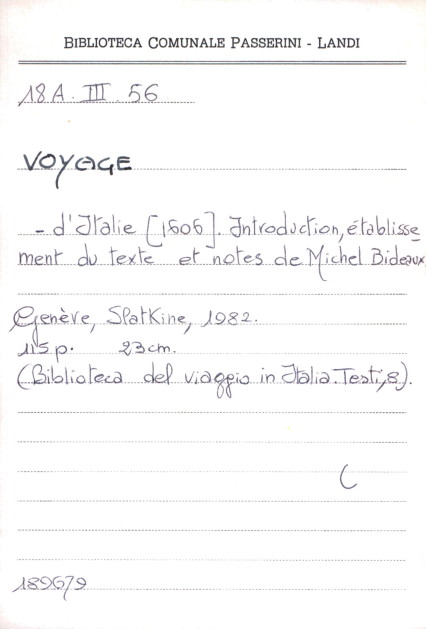 BIBLIOTECA COMUNALE PASSERINI - LANDI
18A. III. 56
VOYAGE
- d'Italie [1606]. Introduction, établisse
ment du texte et notes de Michel Bideaux
Genève, Slatkine, 1982.
115 p. 23cm.
(Biblioteca del viaggio in Italia. Testi, 8).
C
189679